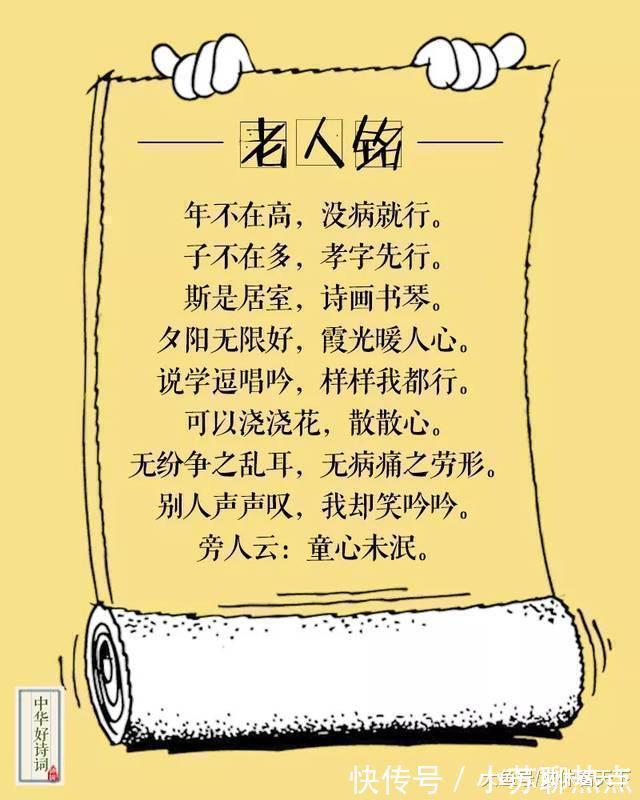 老人铭
年不在高，没病就行。
子不在多，孝字先行。
斯是居室，诗画书琴。
夕阳无限好，霞光暖人心。
说学逗唱吟，样样我都行。
可以浇浇花，散散心。
无纷争之乱耳，无病痛之劳形。
别人声声叹，我却笑吟吟。
旁人云：童心未泯。
中华好诗词
快传号 / 小苏聊热点